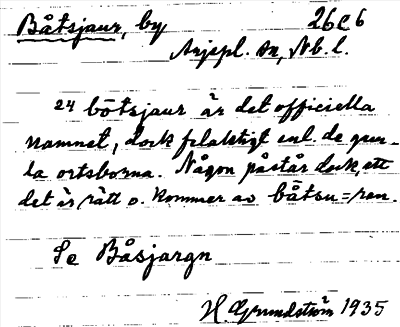 Båtsjaur, by 26e6
Arjepl. sn, Nb. l.
24 båtsjaur är det officiella
namnet, dock felaktigt enl. de gam-
la ortsborna. Någon påstår dock, att
det är rätt o. kommer av båtsu = ren.
Se Båsjargn
H. Grundström 1935